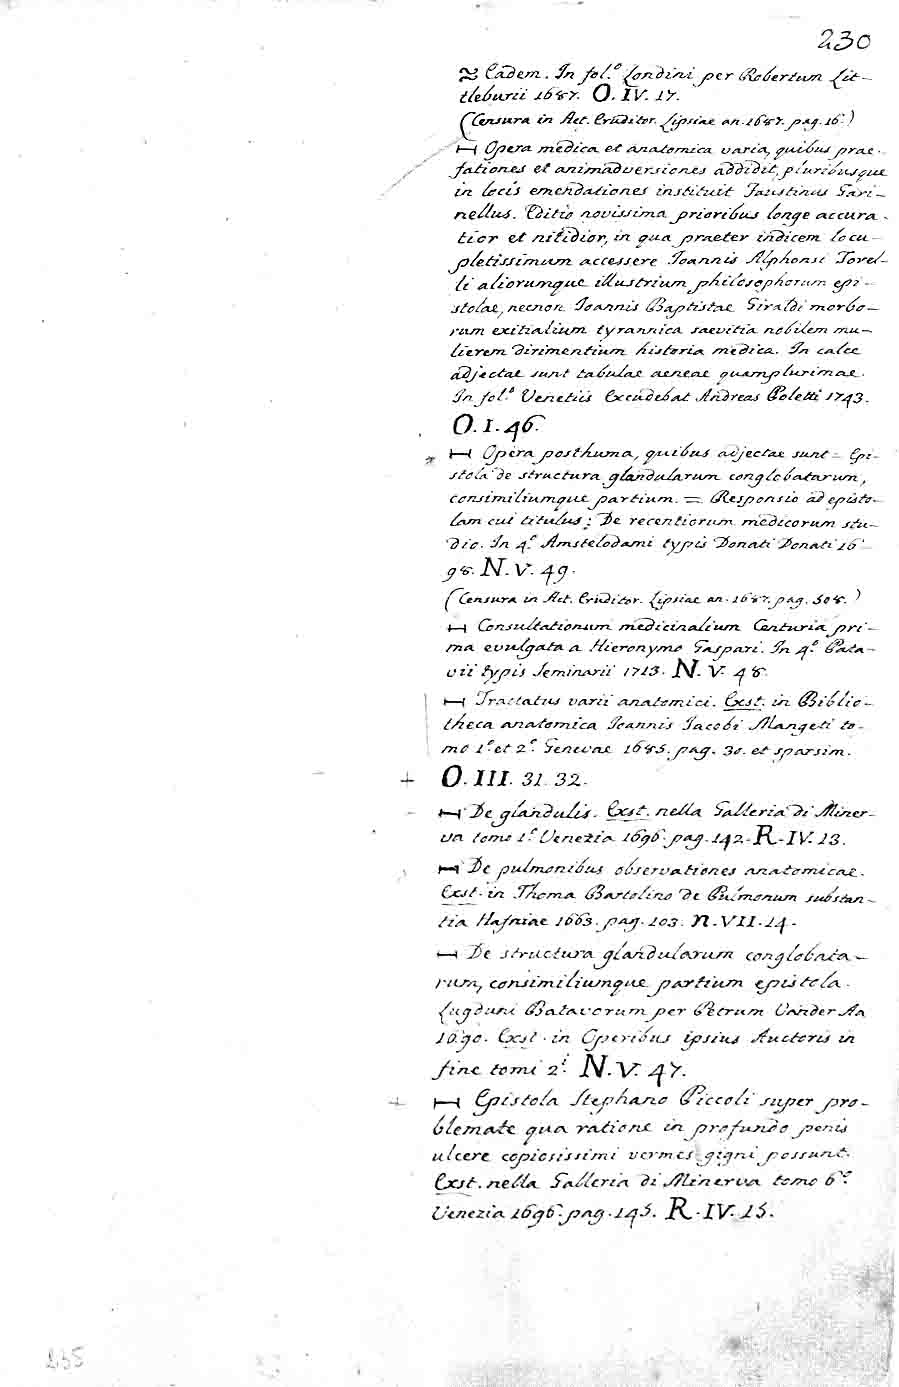 230
Eadem. In fol.º Londini per Robertum Lit-
tleburii 1687. O. IV. 17.
(Censura in Act. Eruditor. Lipsiae an. 1687. pag. 16.)
Opera medica et anatomica varia, quibus prae-
fationes et animadversiones addidit, pluribusque
in locis emendationes instituit Faustinus Gavi-
nellus. Editio novissima prioribus longe accura-
tior et nitidior, in qua praeter indicem locu-
pletissimum accessere Joannis Alphonsi Torel-
li aliorumque illustrium philosophorum epi-
stolae, necnon Joannis Baptistae Giraldi morbo-
rum exitialium tyrannica saevitia nobilem mu-
lierem dirimentium historia medica. In calce
adjectae sunt tabulae aeneae quamplurimae.
In fol.º Venetiis Excudebat Andreas Poletti 1743.
O. I. 46.
Opera posthuma, quibus adjectae sunt = Epi-
stola de structura glandularum conglobatarum,
consimiliumque partium. = Responsio ad episto-
lam cui titulus: De recentiorum medicorum stu-
dio. In 4.º Amstelodami typis Donati Donati 16
98. N. V. 49.
(Censura in Act. Eruditor. Lipsiae an. 1687. pag. 508.)
Consultationum medicinalium Centuria pri-
ma evulgata a Hieronymo Gaspari. In 4.º Pata-
vii typis Seminarii 1713. N. V. 48.
Tractatus varii anatomici. Exst. in Biblio-
theca anatomica Joannis Jacobi Mangeti to-
mo 1.º et 2.º Genevae 1685. pag. 30. et sparsim.
+ O. III. 31. 32.
De glandulis. Exst. nella Galleria di Miner-
va tomo 1.º Venezia 1696. pag. 142. R. IV. 13.
De pulmonibus observationes anatomicae.
Exst. in Thoma Bartolino de Pulmonum substan-
tia Hafniae 1663. pag. 103. n. VII. 14.
De structura glandularum conglobata-
rum, consimiliumque partium epistola.
Lugduni Batavorum per Petrum Vander Aa
1690. Exst. in Operibus ipsius Auctoris in
fine tomi 2.i N. V. 47.
+ Epistola Stephano Piccoli super pro-
blemate qua ratione in profundo penis
ulcere copiosissimi vermes gigni possunt.
Exst. nella Galleria di Minerva tomo 6.º
Venezia 1696. pag. 145. R. IV. 15.
235